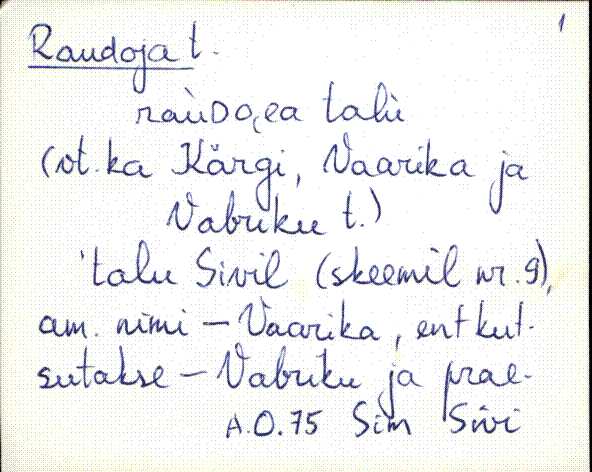 1
Raudoja t.
raùDo͔ea talù
(vt. ka Kärgi, Vaarika ja
Vabriku t.)
'talu Sivil (skeemil nr. 9),
am. nimi – Vaarika, ent kut-
sutakse – Vabriku ja prae-
A.O. 75 Sim Sivi